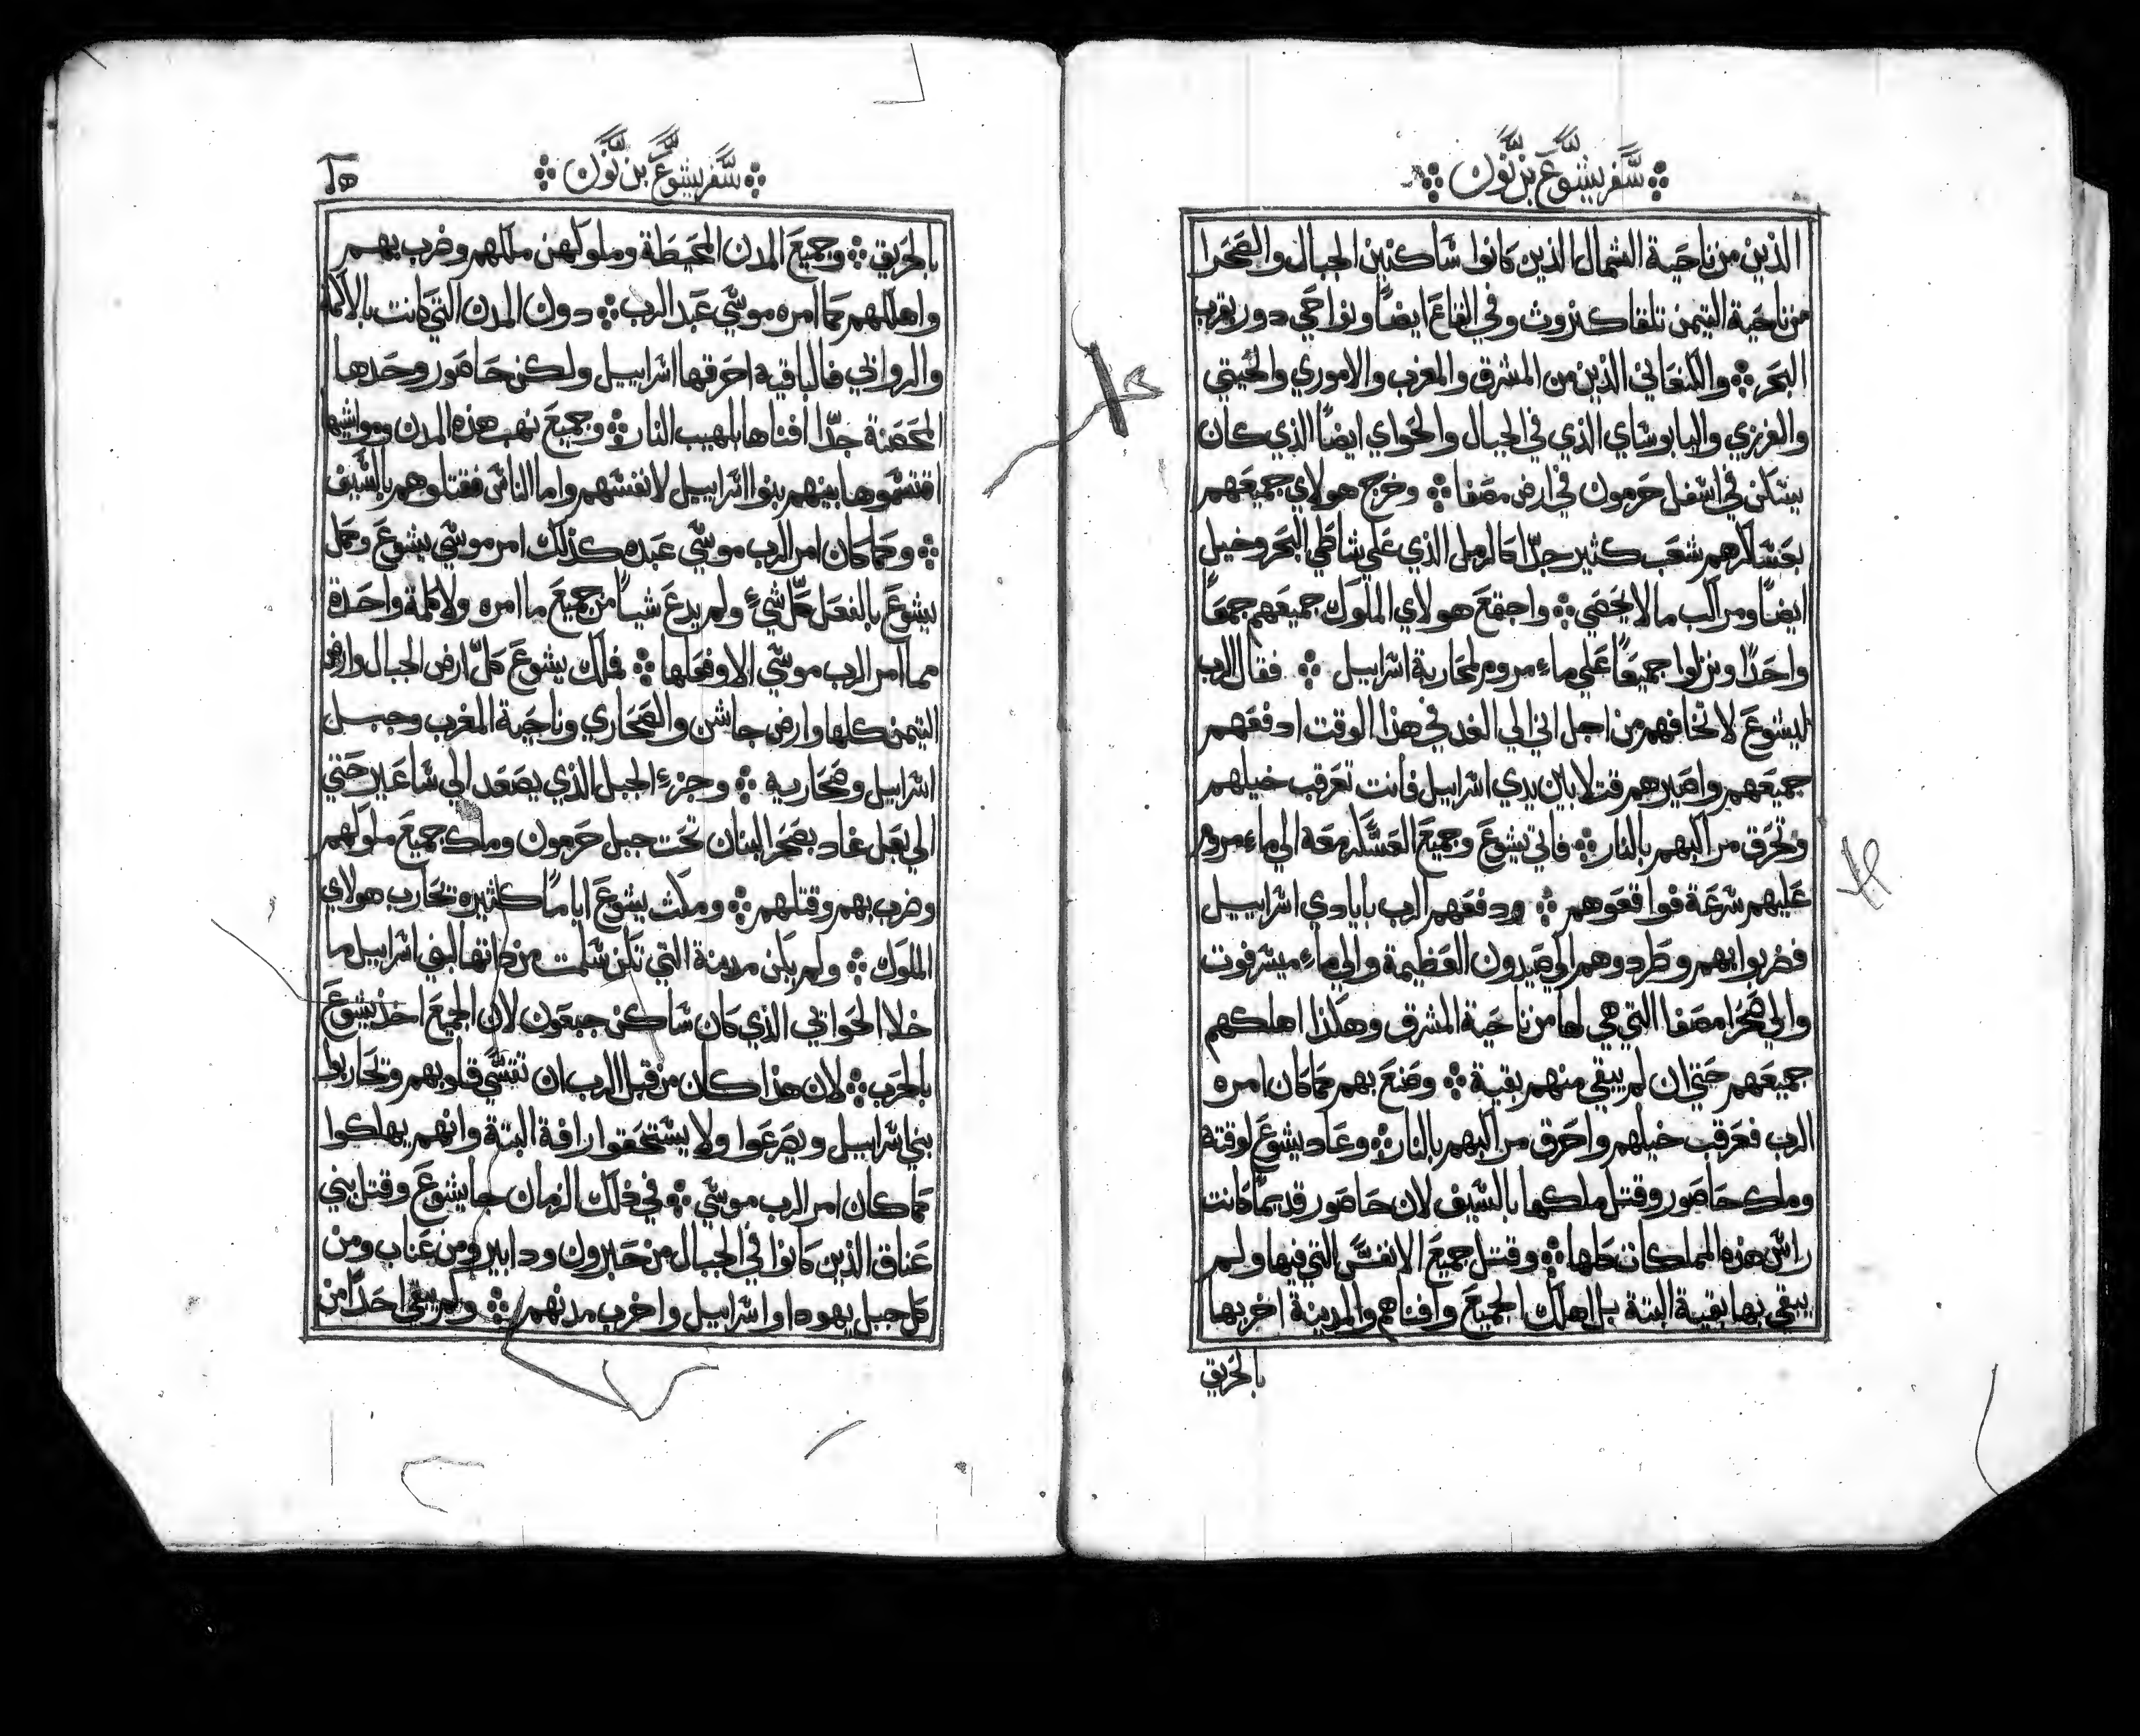 سفر يشوع بن نون
الذين من ناحية الشمال الذين كانوا ساكنين الجبال والصحرا
من ناحية التيمن تلقا كنروث وفي القاع ايضاً ونواحي دور بقرب
البحر والكنعاني الذين من المشرق والمغرب والاموري والحيتي
والفرزي واليابوساي الذي في الجبال والحواي ايضاً الذي كان
يسكن في اسفل حرمون في ارض مصفا وخرج هولاي جميعهم
بعساكرهم شعب كثير جدّا كالرمل الذي علي شاطي البحر وخيل
ايضاً ومراكب ما لا يحصي واجتمع هولاي الملوك جميعهم جمعاً
واحدًا ونزلوا جميعاً علي ماء مروم لمحاربة اسراييل فقال الرب
ليشوع لا تخافهم من اجل اني الي الغد في هذا الوقت ادفعهم
جميعهم واصيرهم قتلا بين يدي اسراييل فأنت تعرقب خيلهم
وتحرق مراكبهم بالنار فاتي يشوع وجميع العسكر معه الي ماء مروم
عليهم سرعة فواقعوهم ودفعهم الرب بايادي اسراييل
فضربوا بهم وطردوهم الي صيدون العظيمة والي ماء ميسرفوت
والي صحرا مصفا التي هي لها من ناحية المشرق وهكذا اهلكهم
جميعهم حتي ان لم يبقي منهم بقية وصنع بهم كما كان امره
الرب فعرقب خيلهم واحرق مراكبهم بالنار وعاد يشوع لوقته
وملك حاصور وقتل ملكها بالسيف لان حاصور قديماً كانت
راس هذه المملكات كلها وقتل جميع الانفس التي فيها ولم
يبقي بها بقية البتة بل اهلك الجميع وافناهم والمدينة اخربها
بالحريق
سفر يشوع بن نون
بالحريق وجميع المدن المحيطة وملوكهن ملكهم وضرب بهم
واهلكهم كما امره موسي عبد الرب دون المدن التي كانت بالاكام
والروابي فالباقيه احرقها اسراييل ولكن حاصور وحدها
المحصنة جدّا افناها بلهيب النار وجميع نهب هذه المدن ومواشيها
اقتسموها بينهم بنوا اسراييل لانفسهم واما الناس فقتلوهم بالسيف
وكما كان امر الرب موسي عبده كذلك امر موسي يشوع وكمل
يشوع بالفعل كل شيء ولم يدع شياً من جميع ما امره ولا كلمة واحدة
مما امر الرب موسي الا وفعلها فملك يشوع كلّ ارض الجبال وارض
التيمن كلها وارض جاشن والصحاري وناحية المغرب وجبل
اسراييل وصحاريه وجزء الجبل الذي يصعد الي ساعير حتي
الي بعل غاد بصحرا لبنان تحت جبل حرمون وملك جميع ملوكهم
وضرب بهم وقتلهم ومكث يشوع اياماً كثيره تحارب هولاي
الملوك ولم يكن مدينة التي تكن سلمت من ذاتها لبني اسراييل ما
خلا الحواني الذي كان ساكن جبعون لان الجميع اخذ يشوع
بالحرب لان هذا كان من قبل الرب ان تقسي قلوبهم وتحاربوا
بني اسراييل ويصرعوا ولا يستحقوا رافة البتة وانهم يهلكوا
كما كان امر الرب موسي في ذلك الزمان جا يشوع وقتل بني
عناق الذين كانوا في الجبال من حبرون ودابير ومن عناب ومن
كل جبل يهودا واسراييل واخرب مدنهم ولم يبقي احدًا من